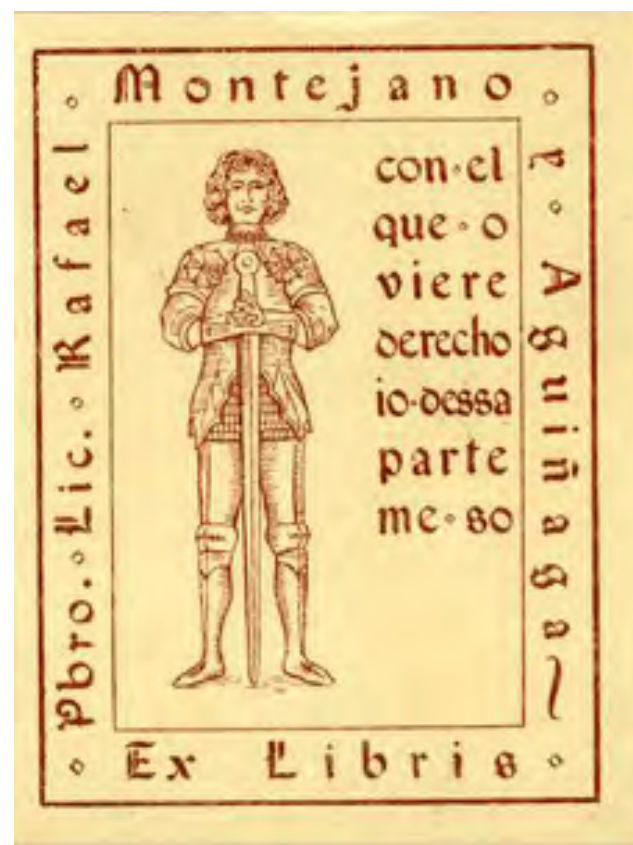 Pbro. Lic. Rafael
Montejano
y Aguiñaga
con·el
que·o
viere
derecho
io·dessa
parte
me·so
Ex Libris